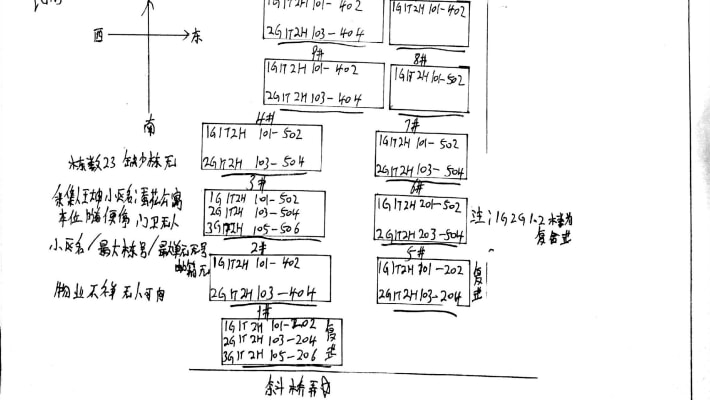 1G1T2H 101-402
2G1T2H 103-404
9#
1G1T2H 101-402
8#
西
东
1G1T2H 101-402
2G1T2H 103-404
4#
1G1T2H 101-502
7#
南
1G1T2H 101-502
2G1T2H 103-504
3#
1G1T2H 101-502
2G1T2H 103-504
6#
栋数23 缺少栋 无
小区名
车位 门卫无人
小区名/最大栋号/最大单元无号
邮箱无
物业不祥 无人可问
1G1T2H 101-502
2G1T2H 103-504
3G1T2H 105-506
2#
1G1T2H 201-502
2G1T2H 203-504
5#
注:1G2G 1.2
复合式
1G1T2H 101-402
2G1T2H 103-404
1#
1G1T2H 101-202
2G1T2H 103-204
复式
1G1T2H 101-202
2G1T2H 103-204
3G1T2H 105-206
复式
余斗桥弄